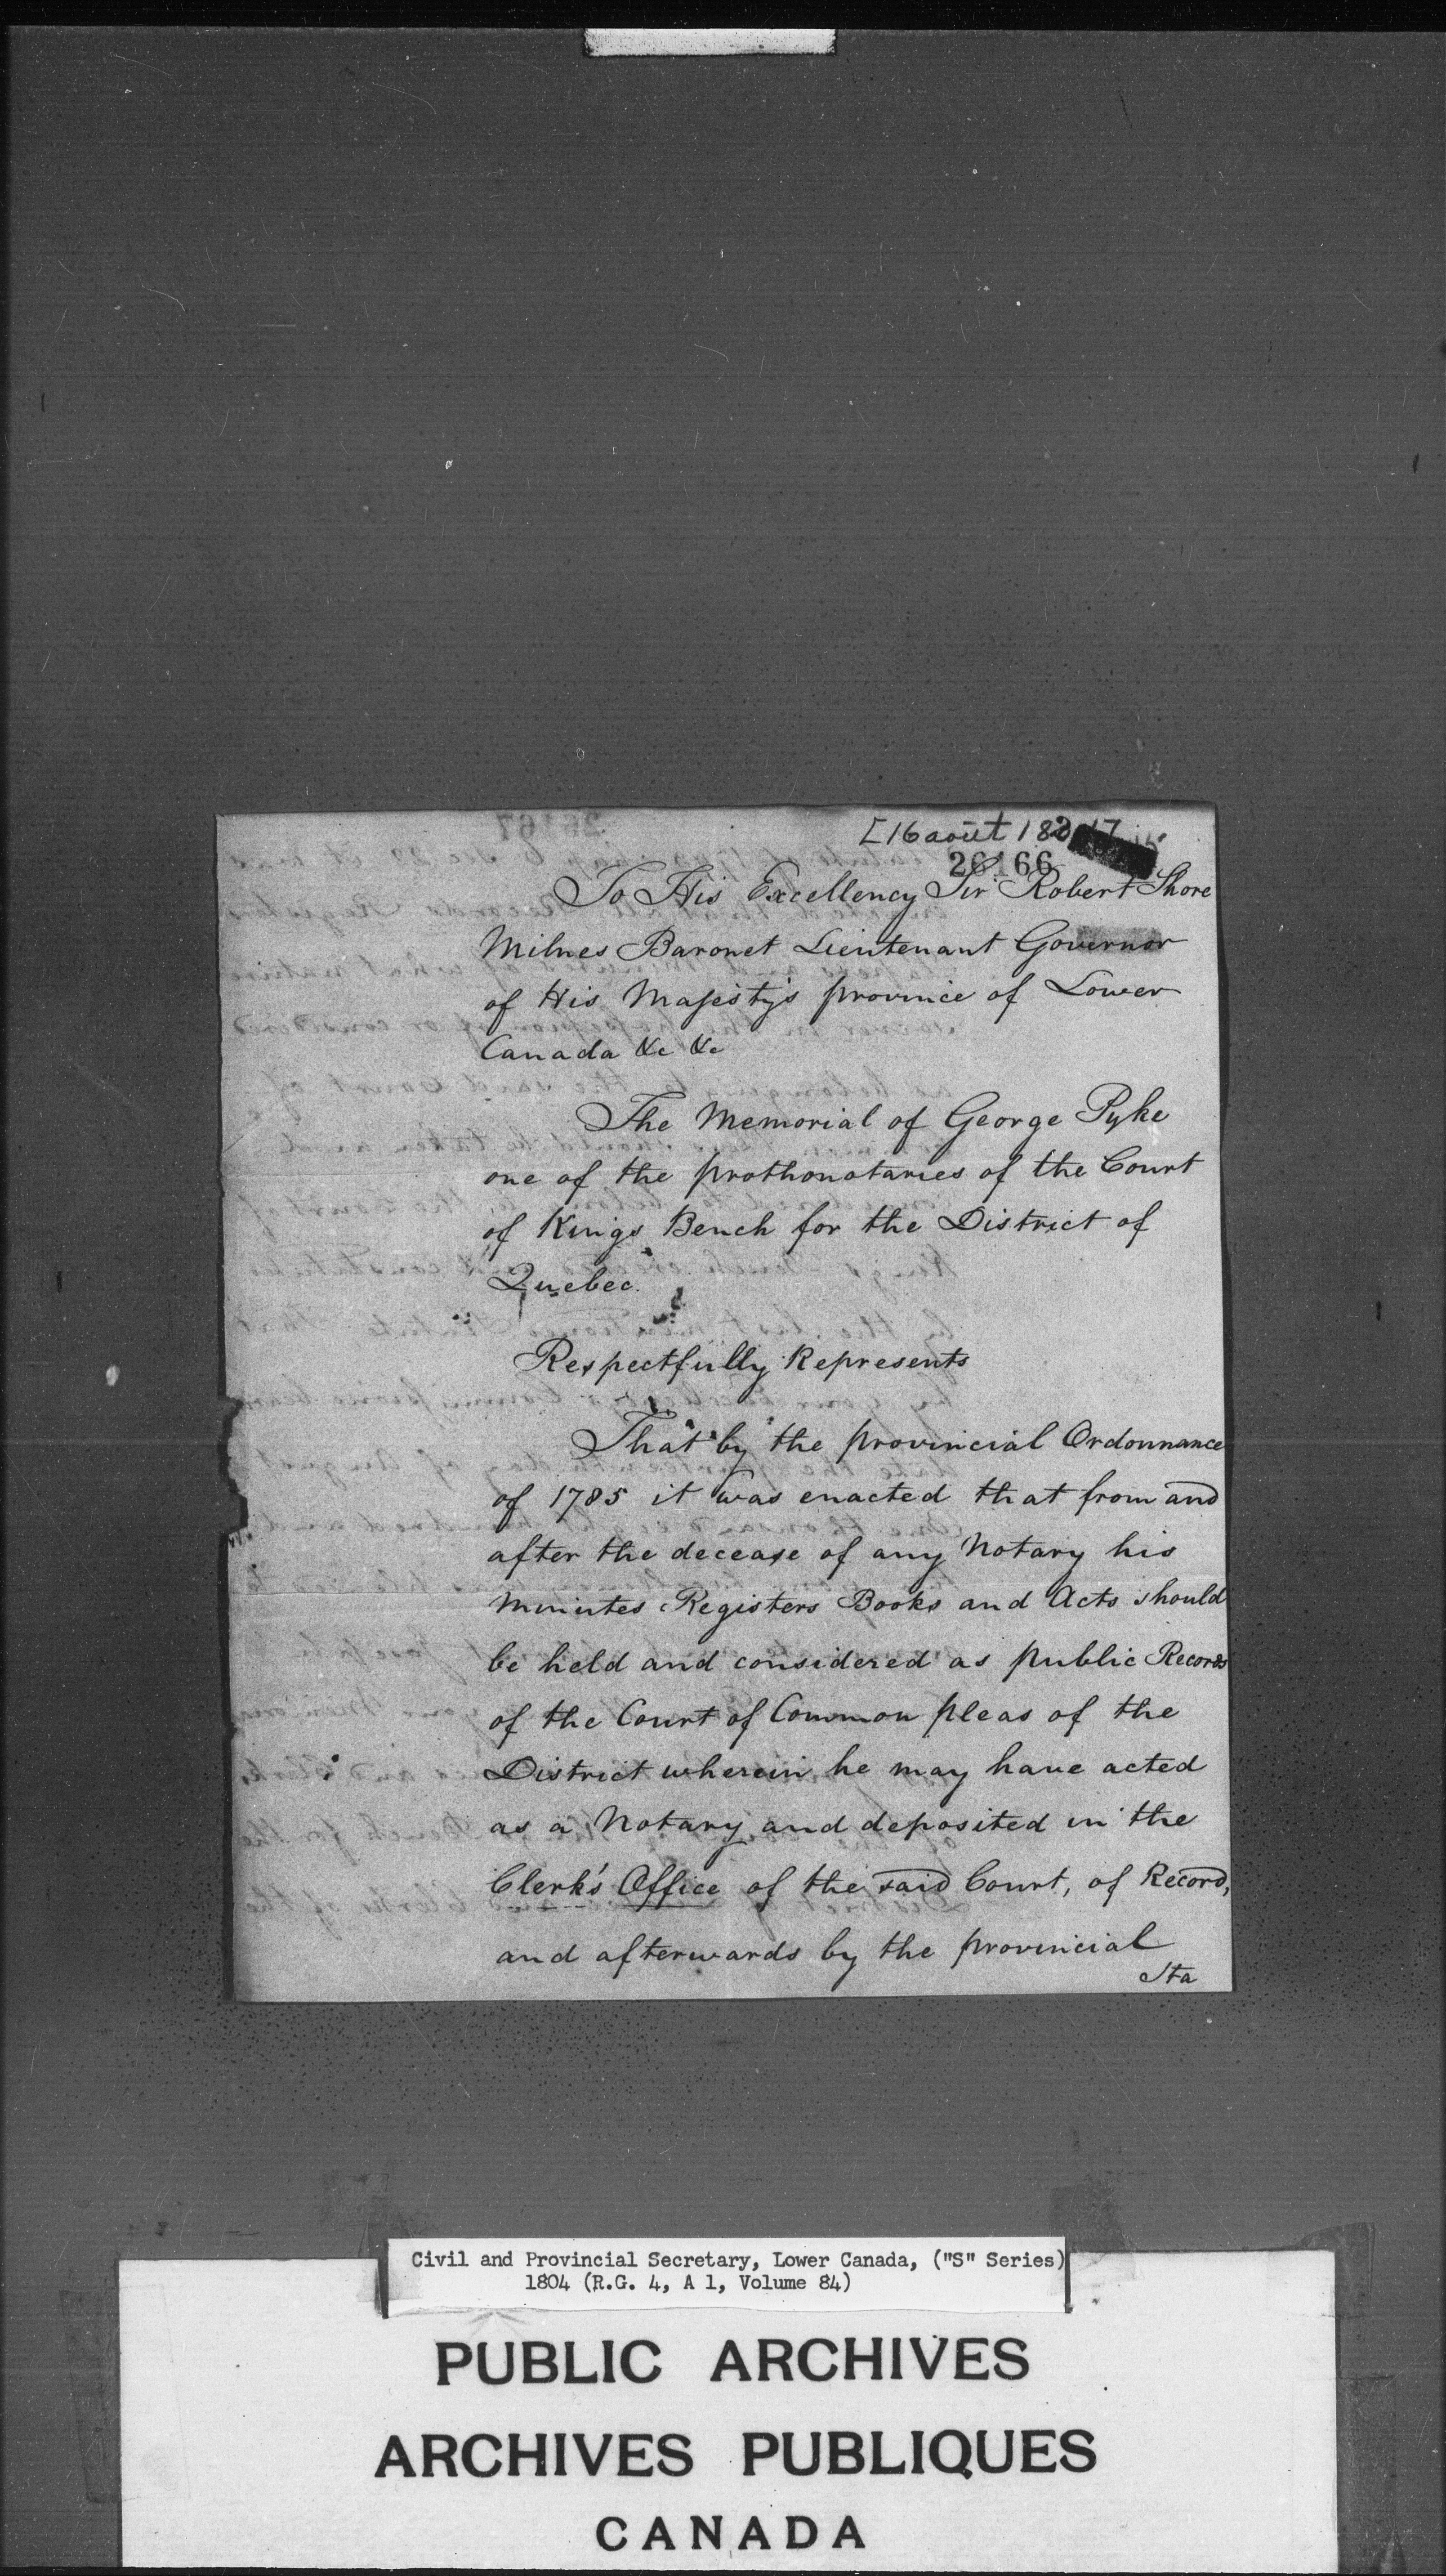 [16 août 180
26166
To His Excellency Sir Robert Shore
Milnes Baronet Lieutenant Governor
of His Majesty's province of Lower
Canada &c &c
The Memorial of George Pyke
one of the prothonotaries of the Court
of Kings Bench for the District of
Quebec.
Respectfully Represents
That by the provincial Ordonnance
of 1785 it was enacted that from and
after the decease of any Notary his
Minutes Registers Books and Acts should
be held and considered as public Records
of the Court of Common pleas of the
District wherein he may have acted
as a Notary and deposited in the
Clerk's Office of the said Court, of Record,
and afterwards by the provincial
Sta
Civil and Provincial Secretary, Lower Canada, ("S" Series)
1804 (R.G. 4, A 1, Volume 84)
PUBLIC ARCHIVES
ARCHIVES PUBLIQUES
CANADA